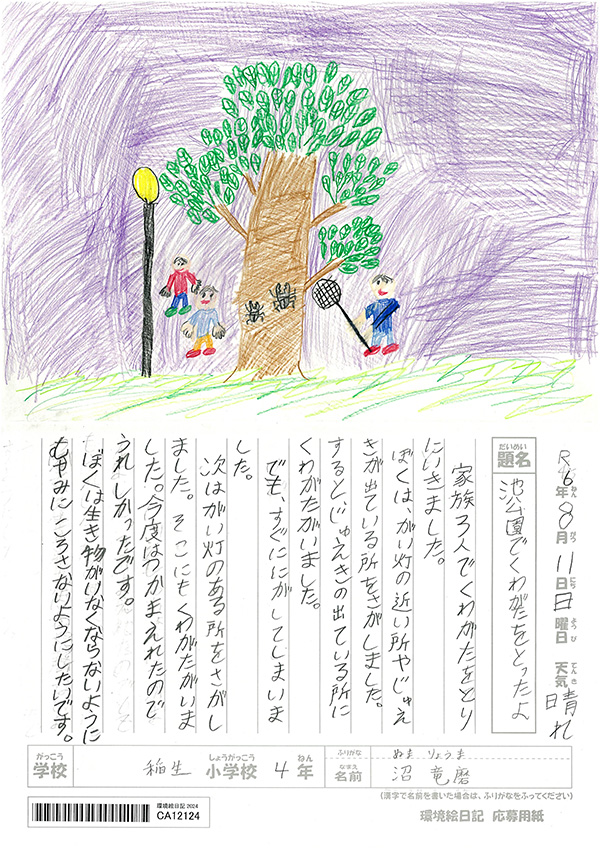 R6年8月11日日曜日 天気晴れ
ねん がつ にち ようび てんき
だいめい
題名 池公園でくわがたをとったよ
家族3人でくわがたをとり
にいきました。
ぼくは、がい灯の近い所やじゅえ
きが出ている所をさがしました。
すると、じゅえきの出ている所に
くわがたがいました。
でも、すぐににがしてしまいま
した。
次はがい灯のある所をさがし
ました。そこにもくわがたがいま
した。今度はつかまえれたので
うれしかったです。
ぼくは生き物がいなくならないように
むやみにころさないようにしたいです。
がっこう しょうがっこう ねん ふりがな ぬま りょうま
学校 稲生 小学校 4年 なまえ 名前 沼 竜磨
(漢字で名前を書いた場合は、ふりがなをふってください)
環境絵日記 2024
CA12124
環境絵日記 応募用紙